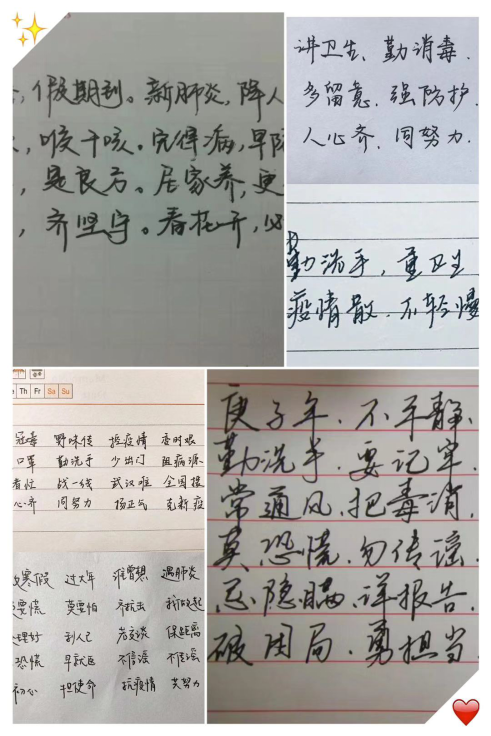 ，假期到。新肺炎，降人
，喉干咳。究得病，早防
，是良方。居家养，更
，齐坚守。春花开，必
讲卫生、勤消毒.
多留意.强防护.
人心齐.同努力.
勤洗手，重卫生
疫情散.不轻慢
Th Fr Sa Su
冠毒 野味传 控疫情 吝时艰
口罩 勤洗手 少出门 阻病源
者位 战一线 武汉难 全国援
心齐 同努力 扬正气 克新疫
寒假 过大年 谁曾想 遇肺炎
要慌 莫要怕 齐抗击 抗战起
理好 利人己 若交谈 保距离
恐慌 早就医 不信谣 不传谣
初心 担使命 抗疫情 共努力
庚子年.不平静.
勤洗手.要记牢.
常通风.把毒消.
莫恐慌.勿传谣.
忌隐瞒.详报告.
破困局.勇担当.